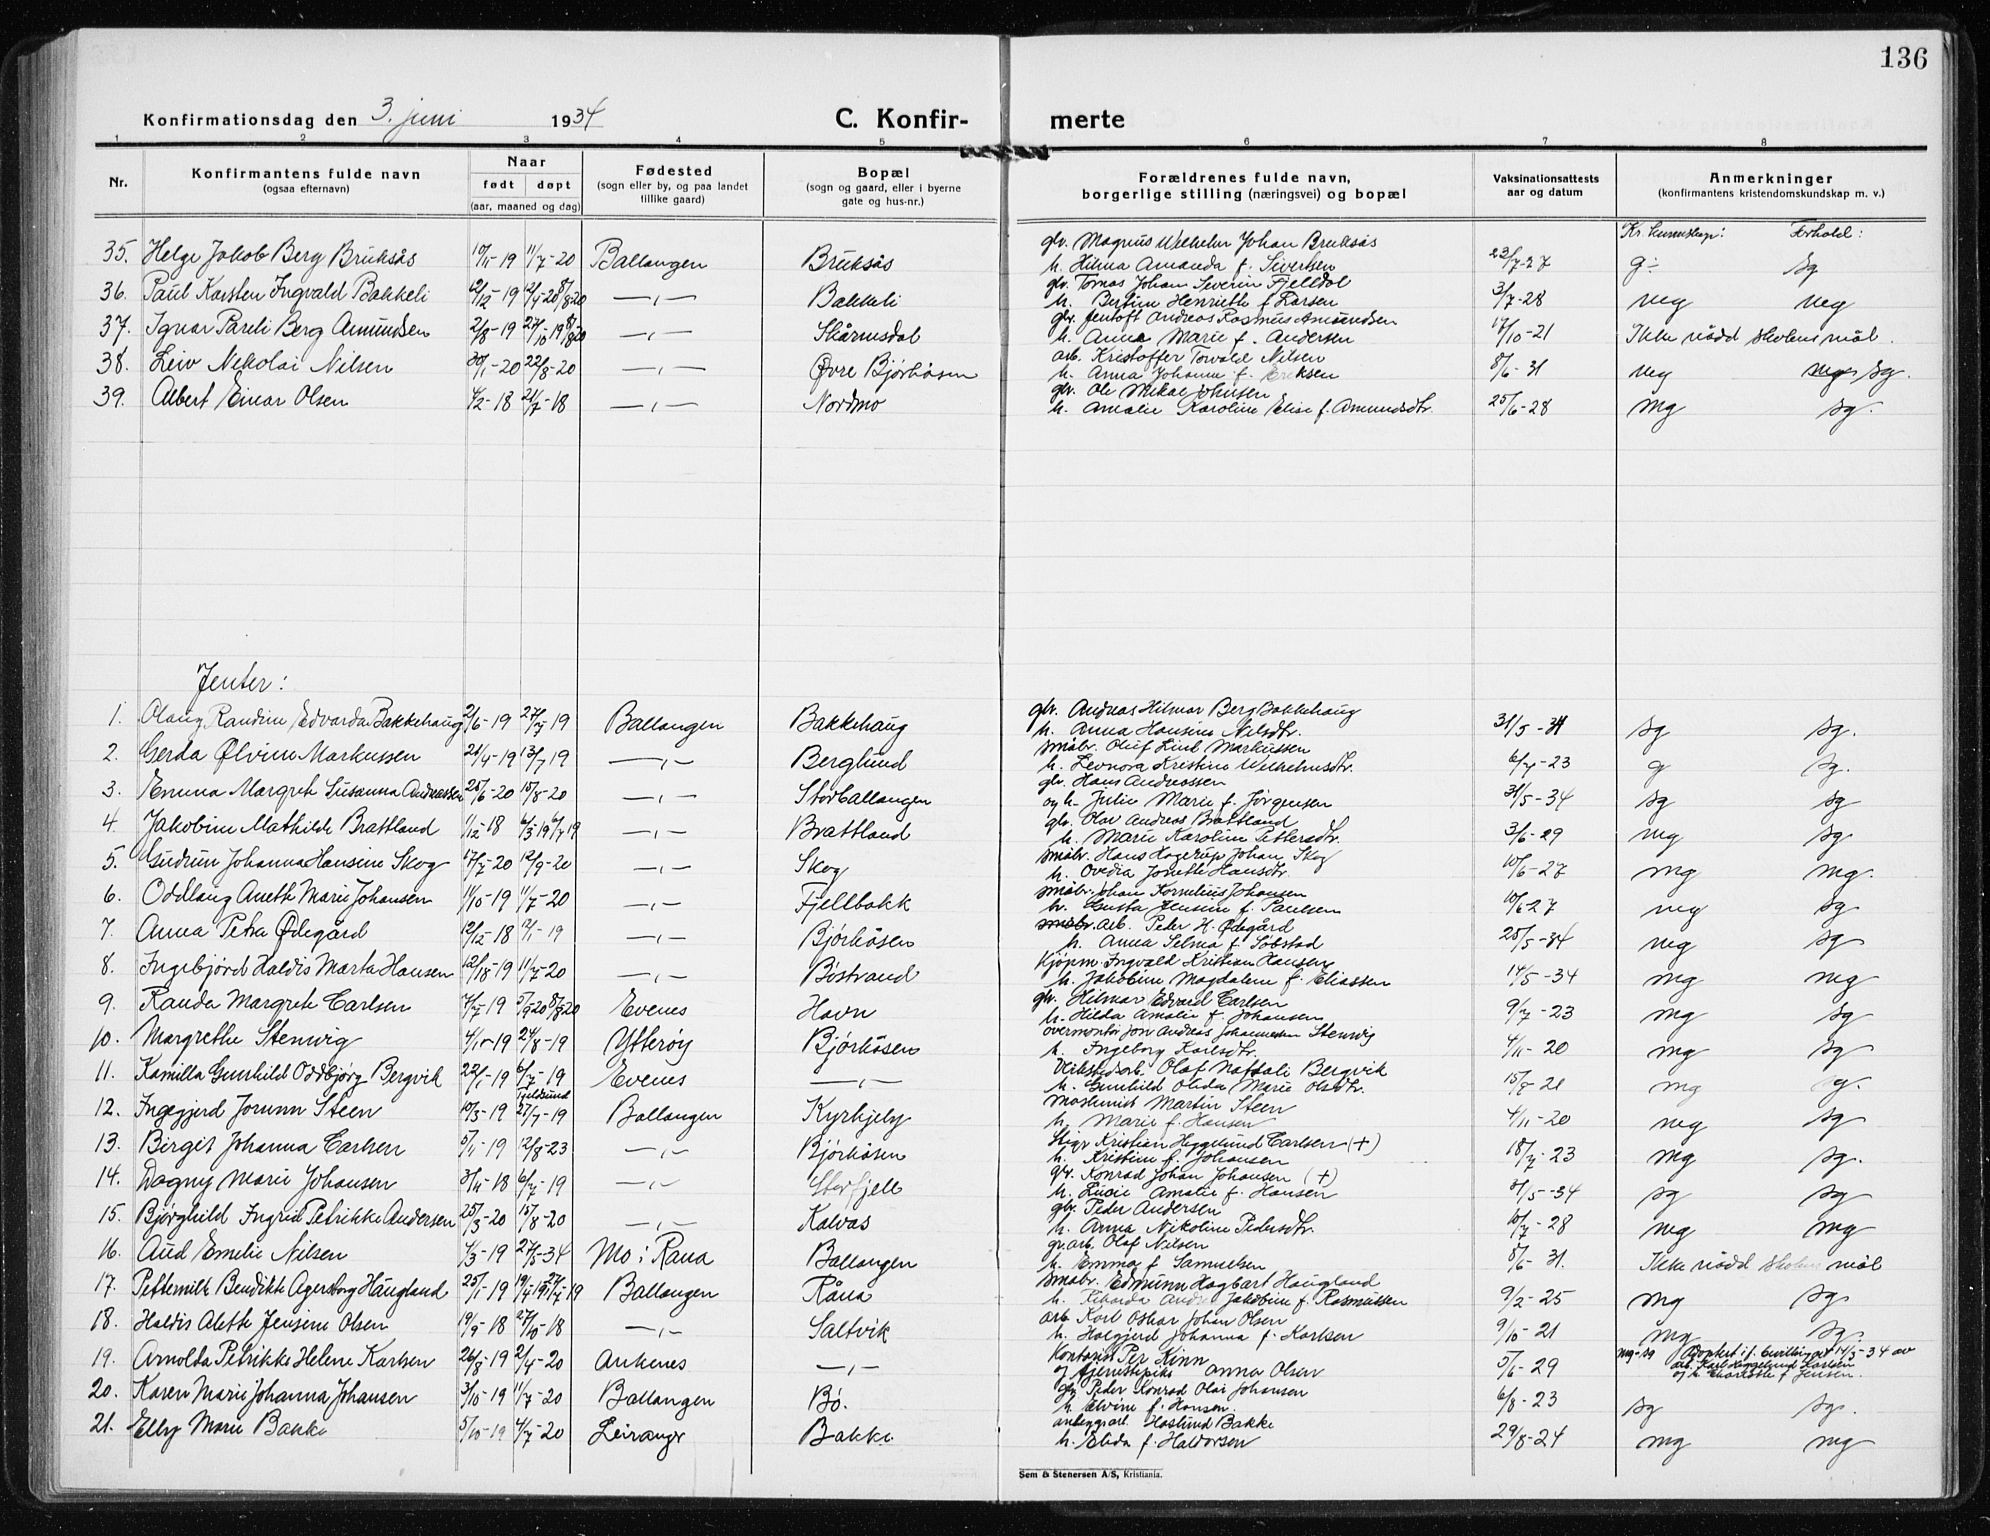 136
Konfirmationsdag den 3. juni 1934
C. Konfirmerte
1 2 3 4 5 6 7 8
Nr. Konfirmantens fulde navn (ogsaa efternavn) Naar født døpt (aar, maaned og dag) Fødested (sogn eller by, og paa landet tillike gaard) Bopæl (sogn og gaard, eller i byerne gate og hus-nr.) Forældrenes fulde navn, borgerlige stilling (næringsvei) og bopæl Vaksinationsattests aar og datum Anmerkninger (konfirmantens kristendomskundskap m. v.)
Kr. kunnskap: Forhold:
35. Helge Jakob Berg Bruksås 10/11-19 11/7-20 Ballangen Bruksås gbr. Magnus Wilhelm Johan Bruksås
h. Hilma Amanda f. Sivertsen 23/7-27 g÷ sg
36. Paul Karsten Ingvald Bakkeli 12/12-19 Bakkeli gbr. Tomas Johan Severin Fjelldal
h. Bertine Henriette f. Larsen 3/7-28 mg mg
37. Ignar Pareli Berg Amundsen 2/8-19 27/10-19 Skårnsdal gbr. Jentoft Andreas Rasmus Amundsen
h. Anna Marie f. Andersen 17/10-21 Ikke nådd skolens mål.
38. Leiv Nikolai Nilsen 30/1-20 22/8-20 Øvre Bjørkåsen arb. Kristoffer Torvald Nilsen
h. Anna Johanne f. Eriksen 8/6-31 mg sg.
39. Albert Einar Olsen 4/2-18 21/7-18 Nordmo gbr. Ole Mikal Johnsen
h. Amalie Karoline Elise f. Amundsdtr. 25/6-28 mg sg.
Jenter:
1. Olaug Randine Edvarda Bakkehaug 2/6-19 27/7-19 Ballangen Bakkehaug gbr. Andreas Hilmar Berg Bakkehaug
h. Anna Hansine Nilsdtr. 31/5-34 sg sg.
2. Gerda Ølvine Markussen 21/4-19 13/7-19 Berglund småbr. Oluf Lind Markussen
h. Leonora Kristine Wilhelmsdtr. 6/7-23 g sg.
3. Emma Margret Susanna Andreassen 25/6-20 15/8-20 Storballangen gbr. Hans Andreassen
og h. Julie Marie f. Jørgensen 31/5-34 sg sg
4. Jakobine Mathilde Brattland 1/12-18 6/3-19 6/7-19 Brattland gbr. Olav Andreas Brattland
h. Marie Karoline Pettersdtr. 3/6-29 mg sg
5. Gudrun Johanna Hansine Skog 17/7-20 12/9-20 Skog småbr. Hans Hagerup Johan Skog
h. Ovedia Jonette Hansdtr. 10/6-27 mg mg.
6. Oddlaug Aneth Marie Johansen 11/10-19 11/7-20 Fjellbakk småbr. Johan Kornelius Johansen
h. Gusta Jensine f. Paulsen 10/6-27 mg sg
7. Anna Petra Ødegård 12/12-18 12/1-19 Bjørkåsen arb. Peter H. Ødegård
h. Anna Selma f. Sobstad 25/5-34 mg sg
8. Ingebjørd Haldis Marta Hansen 11/7-20 Bøstrand Kjøpm. Ingvald Kristian Hansen
h. Jakobine Magdalene f. Eliassen 14/5-34 mg mg
9. Randa Margrete Carlsen Evenes Havn gbr. Hilmar Edvard Carlsen
h. Hilda Amalie f. Johansen 9/7-23 mg sg
10. Margrethe Stenvig 24/8-19 Ytterøy Bjørkåsen overmontør Jon Andreas Johannessen Stenvig
h. Ingeborg Karlsdtr. 4/11-20 mg sg
11. Kamilla Gunhild Oddbjørg Bergvik 22/1-19 6/7-19 Evenes Olaf Naftali Bergvik
h. Gunhild Olida Marie Olsdtr. mg
12. Ingegjerd Jorunn Steen 10/3-19 Tjeldsund 27/7-19 Ballangen Kyrkjeby maskinist Martin Steen
h. Marie f. Hansen 4/11-20 mg sg
13. Birgit Johanna Carlsen 5/11-19 12/8-23 Bjørkåsen Stigr Kristian Heggelund Carlsen (+)
h. Kristine f. Johansen 18/7-23 mg sg.
14. Dagny Marie Johansen 3/11-18 6/7-19 Storfjell gbr. Konrad Johan Johansen (+)
h. Lucie Amalie f. Hansen 31/5-34 sg sg
15. Bjørghild Ingrid Petrikke Andersen 25/3-20 15/8-20 Kalvås gbr. Peder Andersen
h. Anna Nikoline Pedersdtr. 10/7-28 mg mg
16. Aud Emelie Nilsen 4/3-19 27/5-34 Mo i Rana Ballangen gr.arb. Olaf Nilsen
h. Emma f. Samuelsen 8/6-31. Ikke nådd skolens mål
17. Pettemille Bendikte Agersborg Haugland 25/1-19 Ballangen Råna småbr. Edmunn Hagbart Haugland
h. Rikarda Jakobine f. Rasmussen 9/2-25 mg sg
18. Haldis Aleth Jensine Olsen 19/9-18 27/10-18 Saltvik arb. Karl Oskar Johan Olsen
h. Halgjerd Johanna f. Karlsen 9/10-21 mg sg.
19. Arnolda Petrikke Helene Karlsen 26/8-19 2/4-20 Ankenes Kontorist Per Kinn
og tjenestepike Anna Olsen 5/6-29 mg-sg Adoptert i f. bevilling av 14/3-34 av
arb. Karl Heggelund Karlsen
og h. Charlotte f. Jensen.
20. Karen Marie Johanna Johansen 3/10-19 11/7-20 Ballangen Bø. gbr Peder Konrad Olai Johansen
h. Elvine f. Hansen. 6/8-23 sg sg.
21. Elly Marie Bakke 5/10-19 4/7-20 Leiranger Bakke anleggsarb. Haslund Bakke
h. Elida f. Haldorsen 29/8-24 mg mg
Sem & Stenersen A/S, Kristiania.